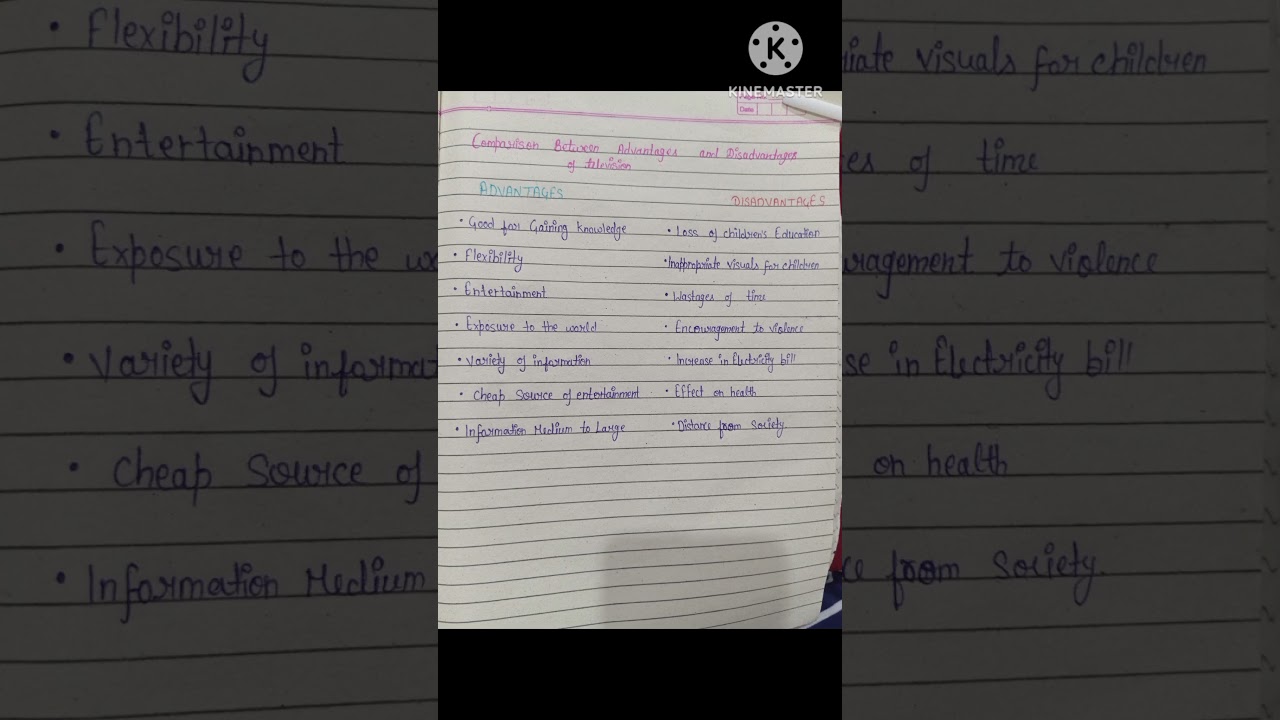 KINEMASTER
Date
Comparison Between Advantages and Disadvantages
of television
ADVANTAGES
DISADVANTAGES
• Good for Gaining knowledge
• Loss of children's Education
• Flexibility
• Inappropriate visuals for children
• Entertainment
• Wastages of time
• Exposure to the world
• Encouragement to violence
• Variety of information
• Increase in Electricity bill
• Cheap Source of entertainment
• Effect on health
• Information Medium to Large
• Distance from Society.
• Flexibility
• Entertainment
• Exposure to the
• Variety of
• Cheap Source of
• Information Medium
visuals for children
of time
to violence
in Electricity bill
on health
from Society.